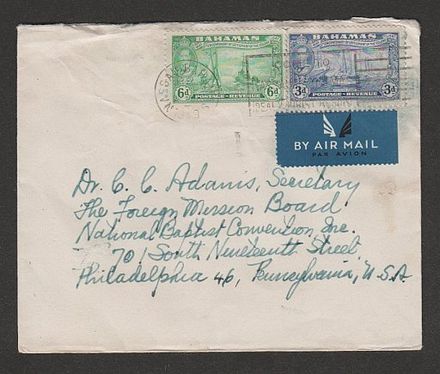 BAHAMAS
6d
POSTAGE · REVENUE
6d
BAHAMAS
3d
POSTAGE · REVENUE
3d
BY AIR MAIL
PAR AVION
Dr. C. C. Adams, Secretary
The Foreign Mission Board
National Baptist Convention, Inc.
701 South Nineteenth Street
Philadelphia 46, Pennsylvania, U.S.A.